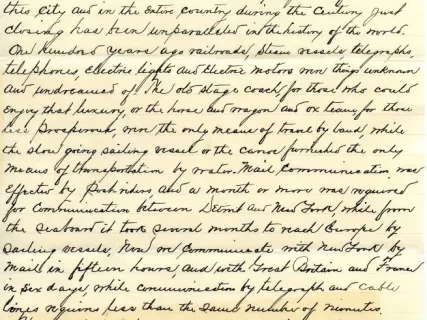 this City and in the entire country during the Century just
closing has been unparalleled in the history of the world.
One hundred years ago railroads, steam vessels, telegraphs,
telephones, electric lights and electric motors were things unknown
and undreamed of. The old stage coach, for those who could
enjoy that luxury, or the horse and wagon and ox team, for those
less prosperous, were the only means of travel by land, while
the slow going sailing vessel or the canoe furnished the only
means of transportation by water. Mail communication was
effected by post riders, and a month or more was required
for communication between Detroit and New York, while from
the seaboard it took several months to reach Europe by
sailing vessels. Now we communicate with New York by
mail in fifteen hours, and with Great Britain and France
in six days, while communication by telegraph and cable
lines requires less than the same number of minutes.